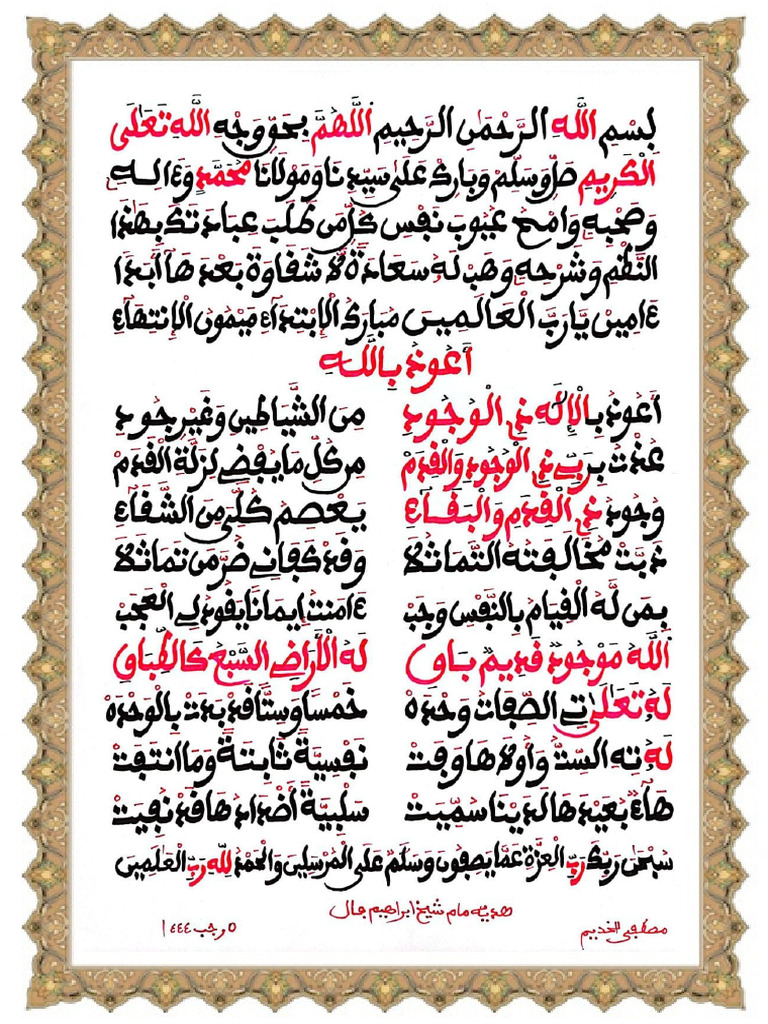 بِسْمِ اللَّهِ الرَّحْمَٰنِ الرَّحِيمِ اللَّهُمَّ بِحَقِّ وَجْهِ اللَّهِ تَعَالَى
الْكَرِيمِ صَلِّ وَسَلِّمْ وَبَارِكْ عَلَى سَيِّدِنَا وَمَوْلَانَا مُحَمَّدٍ وَءَالِهِ
وَصَحْبِهِ وَامْحُ عُيُوبَ نَفْسِ كُلِّ مَن طَلَبَ عِبَادَتَكَ بِهَٰذَا
النَّظْمِ وَشَرْحِهِ وَهَبْ لَهُ سَعَادَةً لَا شَقَاوَةَ بَعْدَهَا أَبَدًا
ءَامِينَ يَا رَبَّ الْعَالَمِينَ مُبَارَكُ الْإِبْتِدَاءِ مَيْمُونُ الْإِنْتِهَاءِ
أَعُوذُ بِاللَّهِ
أَعُوذُ بِالْإِلَٰهِ ذِي الْوُجُودِ مِنَ الشَّيَاطِينِ وَغَيْرِ جُودِ
عُذْتُ بِرَبِّي ذِي الْوُجُودِ وَالْقِدَمْ مِن كُلِّ مَا يُفْضِي لِزَلَّةِ الْقَدَمْ
وُجُودُ ذِي الْقِدَمِ وَالْبَقَاءِ يَعْصِمُ كُلِّي مِنَ الشَّقَاءِ
ذَبَّتْ مُخَالَفَتُهُ التَّمَاثُلَا وَقَدْ كَفَانِي ضُرَّ مَن تَمَاثَلَا
بِمَن لَّهُ الْقِيَامُ بِالنَّفْسِ وَجَبْ ءَامَنْتُ إِيمَانًا يَقُودُ لِي الْعَجَبْ
اللَّهُ مَوْجُودٌ قَدِيمٌ بَاقِ لَهُ الْأَرَاضِي السَّبْعُ كَالطِّبَاقِ
لَهُ تَعَالَىٰ تِي الصِّفَاتُ وَحْدَهْ خَمْسًا وَسِتًّا قَدْ بَدَتْ بِالْوَحْدَهْ
لَهُ تِهِ السِّتُّ وَأُولَاهَا وَفَتْ نَفْسِيَّةً ثَابِتَةً وَمَا انْتَفَتْ
هَاءٌ بُعَيْدَهَا لَدَيْنَا سُمِّيَتْ سَلْبِيَّةً أَضْدَادُهَا قَدْ نُفِيَتْ
سُبْحَٰنَ رَبِّكَ رَبِّ الْعِزَّةِ عَمَّا يَصِفُونَ وَسَلَٰمٌ عَلَى الْمُرْسَلِينَ وَالْحَمْدُ لِلَّهِ رَبِّ الْعَٰلَمِينَ
هدية مام شيخ ابراهيم فال
مصطفى الخديم
٥ رجب ١٤٤٤